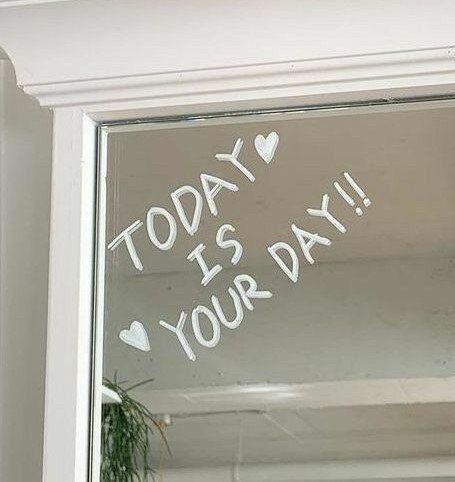 TODAY🤍
IS
🤍YOUR DAY!!